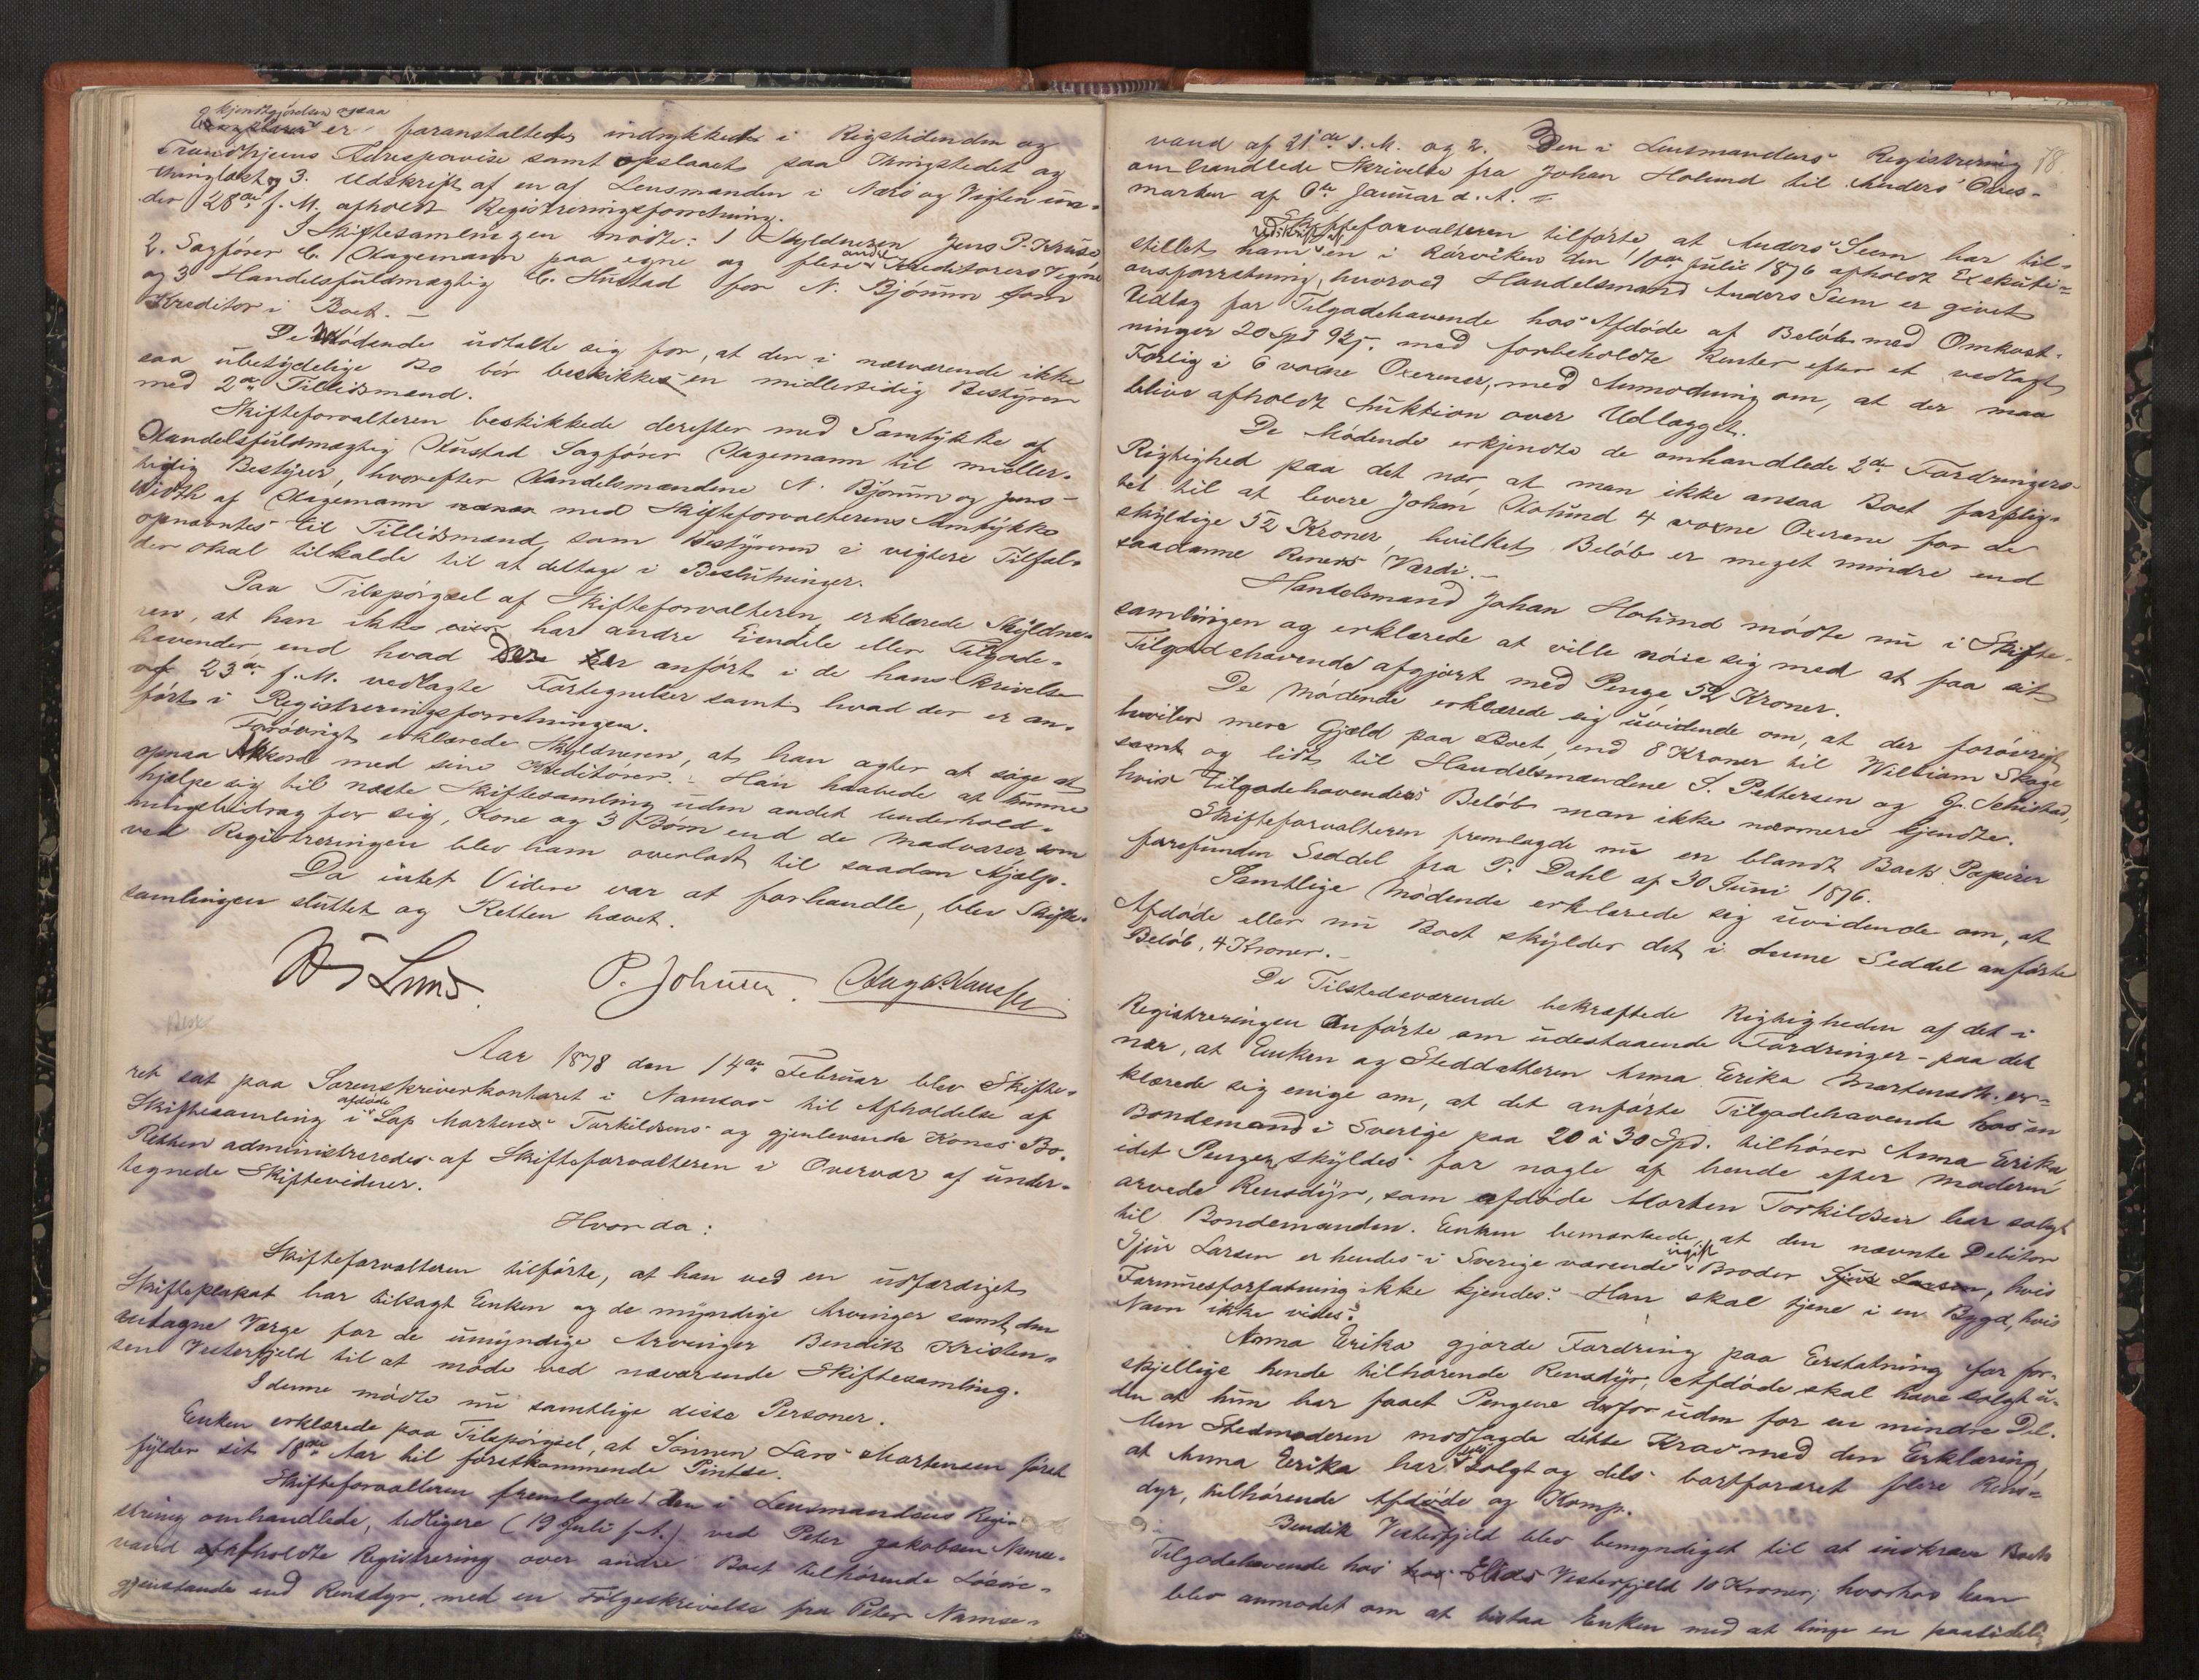 kjendtgjørelsen ogsaa
er foranstaltedes indrykkede i Rigstidenden og
Trondhjems Adresseavise samt opslaaet paa Thingstedet og
thinglæst og 3. Udskrift af en af Lensmanden i Nærö og Vigten un-
der 28de f. M. afholdt Registreringsforretning.
I Skiftesamlingen mödte: 1 Skyldneren Jens P. Kruse
2. Sagförer C. Hagemann paa egne og flere andre Kreditorers Vegne
og 3 Handelsfuldmægtig C. Hustad for N. Björum som
Kreditor i Boet. –
De Mödende udtalte sig for, at der i nærværende ikke
saa ubetydelige Bo bör beskikkes en midlertidig Bestyrer
med 2de Tillidsmænd.
Skifteforvalteren beskikkede derefter med Samtykke af
Handelsfuldmægtig Hustad Sagförer Hagemann til midler-
tidig Bestyrer, hvorefter Handelsmændene N. Bjørum og Jens
Width af Hagemann med Skifteforvalterens Samtykke
opnævntes til Tillidsmænd, som Bestyreren i vigtere Tilfæl-
der skal tilkalde til at deltage i Beslutninger.
Paa Tilspörgsel af Skifteforvalteren erklærede Skyldne-
ren, at han ikke har andre Eiendele eller Tilgode-
havender, end hvad der er anfört i de hans Skrivelse
af 23de f. M. vedlagte Fortegnelser samt hvad der er an-
fört i Registreringsforretningen.
Forövrigt erklærede Skyldneren, at han agter at söge at
opnaa Akkord med sine Kreditorer. – Han haabede at kunne
hjælpe sig til næste Skiftesamling uden andet Underhold-
ningsbidrag for sig, Kone og 3 Börn end de Madvarer som
ved Registreringen blev ham overladt til saadan Hjælp.
Da intet Videre var at forhandle, blev Skifte-
samlingen sluttet og Retten hævet.
Lund. P. Johnsen.
Aar 1878 den 14de Februar blev Skifte-
ret sat paa Sorenskriverkontoret i Namsos til Afholdelse af
Skiftesamling i afdöde Lap Martens Torkildsens og gjenlevende Kones Bo.
Retten administreredes af Skifteforvalteren i Overvær af under-
tegnede Skiftevidner.
Hvor da:
Skifteforvalteren tilförte, at han ved en udfærdiget
Skifteplakat har tilsagt Enken og de myndige Arvinger samt den
antagne Værge for de umyndige Arvinger Bendik Kristen-
sen Vesterfjeld til at möde ved nærværende Skiftesamling.
I denne mödte nu samtlige disse Personer.
Enken erklærede paa Tilspörgsel, at Sönnen Lars Martensen först
fylder sit 18de Aar til förstkommende Pintse.
Skifteforvalteren fremlagde 1 den i Lensmandens Regi-
strering omhandlede, tidligere (19 Juli f. A.) ved Peter Jakobsen Namse-
vand afholdte Registrering over andre Boet tilhörende Lösöre-
gjenstande end Rensdyr, med en Fölgeskrivelse fra Peter Namse-
78.
vand af 21de s. M. og 2. Den i Lensmandens Registrering
omhandlede Skrivelse fra Johan Holund til Anders Oxes-
marken af 6te Januar d. A. =
Skifteforvalteren tilförte, at Anders Seem har til-
stillet ham Udskrift af en i Rörviken den 10de Julie 1876 afholdt Exekuti-
onsforretning, hvorved Handelsmand Anders Seem er givet
Udlæg for Tilgodehavende hos Afdöde af Belöb med Omkost-
ninger 20 Spd 92 s. med forbeholdte Renter efter et vedlagt
Forlig i 6 voxne Oxerener, med Anmodning om, at der maa
blive afholdt Auktion over Udlægget.
De Mödende erkjendte de omhandlede 2de Fordringers
Rigtighed paa det nær, at man ikke ansaa Boet forplig-
tet til at levere Johan Holund 4 voxne Oxerene for de
skyldige 52 Kroner, hvilket Belöb er meget mindre end
saadanne Reners Værdi. –
Handelsmand Johan Holund mödte nu i Skifte-
samlingen og erklærede at ville nöie sig med at faa sit
Tilgodehavende afgjort med Penge, 52 Kroner.
De Mödende erklærede sig uvidende om, at der forövrigt
hviler mere Gjæld paa Boet, end 8 Kroner til William Skage
samt og lidt til Handelsmændene S. Pettersen og G. Sehistad,
hvis Tilgodehavenders Belöb man ikke nærmere kjendte.
Skifteforvalteren fremlagde nu en blandt Boets Papirer
forefunden Seddel fra P. Dahl af 30 Juni 1876.
Samtlige Mödende erklærede sig uvidende om, at
Afdöde eller nu Boet skylder det i denne Seddel anförte
Belöb, 4 Kroner. –
De Tilstedeværende bekræftede Rigtigheden af det i
Registreringen Anförte om udestaaende Fordringer – paa det
nær, at Enken og Steddatteren Anna Erika Martensdtr. er-
klærede sig enige om, at det anförte Tilgodehavende hos en
Bondemand i Sverige paa 20 à 30 Spd. tilhörer Anna Erika,
idet Pengene skyldes for nogle af hende efter Moderen
arvede Rensdyr, som afdöde Morten Torkildsen har solgt
til Bondemanden. Enken bemærkede, at den nævnte Debitor
Sjur Larsen er hendes i Sverige værende ugift Broder Sjur Larsen, hvis
Formuesforfatning ikke kjendes. Han skal tjene i en Bygd, hvis
Navn ikke vides.
Anna Erika gjorde Fordring paa Erstatning for for-
skjellige hende tilhörende Rensdyr, Afdöde skal have solgt u-
den at hun har faaet Pengene derfor uden for en mindre Del.
Men Stedmoderen modsagde dette Krav med den Erklæring,
at Anna Erika har dels solgt og dels bortforæret flere Rens-
dyr, tilhörende Afdöde og Komp.
Bendik Vesterfjeld blev bemyndiget til at indkræve Boets
Tilgodehavende hos Elias Vesterfjeld 10 Kroner, hvorhos han
blev anmodet om at bistaa Enken med at tinge en paalidelig